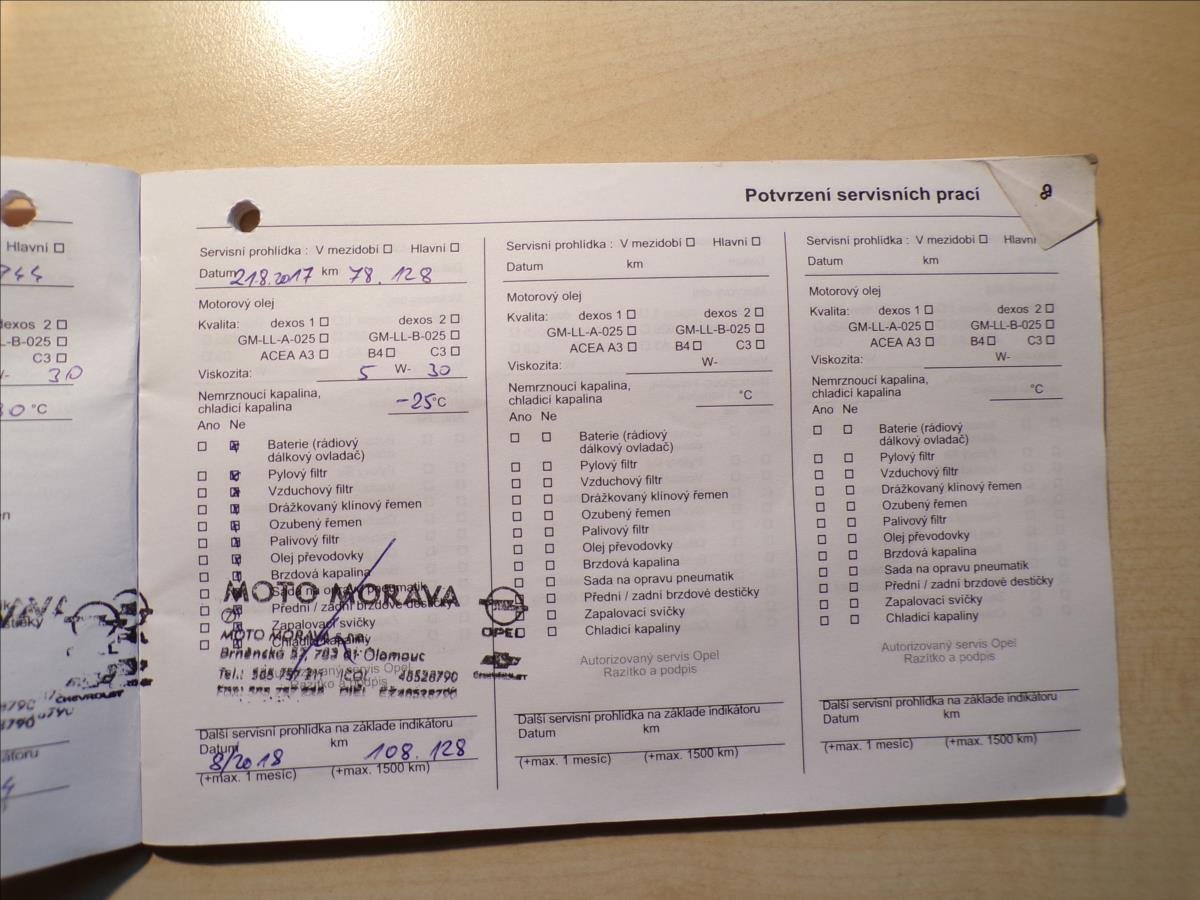 Hlavní
744
dexos 2
LL-B-025
C3
W- 30
°C
Potvrzení servisních prací
Servisní prohlídka : V mezidobí Hlavní
Datum 21.8.2017 km 78.128
Motorový olej
Kvalita: dexos 1 dexos 2
GM-LL-A-025 GM-LL-B-025
ACEA A3 B4 C3
Viskozita: 5 W- 30
Nemrznoucí kapalina,
chladicí kapalina -25°C
Ano Ne
Baterie (rádiový
dálkový ovladač)
Pylový filtr
Vzduchový filtr
Drážkovaný klínový řemen
Ozubený řemen
Palivový filtr
Olej převodovky
Brzdová kapalina
Sada na opravu pneumatik
MOTO MORAVA
Přední / zadní brzdové destičky
Zapalovací svíčky
Chladicí kapaliny
MOTO MORAVA
Olomouc
OPEL
Autorizovaný servis Opel
Razítko a podpis
CHEVROLET
Další servisní prohlídka na základe indikátoru
Datum km
8/2018 108.128
(+max. 1 mesíc) (+max. 1500 km)
Servisní prohlídka : V mezidobí Hlavní
Datum km
Motorový olej
Kvalita: dexos 1 dexos 2
GM-LL-A-025 GM-LL-B-025
ACEA A3 B4 C3
Viskozita: W-
Nemrznoucí kapalina,
chladicí kapalina °C
Ano Ne
Baterie (rádiový
dálkový ovladač)
Pylový filtr
Vzduchový filtr
Drážkovaný klínový řemen
Ozubený řemen
Palivový filtr
Olej převodovky
Brzdová kapalina
Sada na opravu pneumatik
Přední / zadní brzdové destičky
Zapalovací svíčky
Chladicí kapaliny
Autorizovaný servis Opel
Razítko a podpis
Další servisní prohlídka na základe indikátoru
Datum km
(+max. 1 mesíc) (+max. 1500 km)
Servisní prohlídka : V mezidobí Hlavní
Datum km
Motorový olej
Kvalita: dexos 1 dexos 2
GM-LL-A-025 GM-LL-B-025
ACEA A3 B4 C3
Viskozita: W-
Nemrznoucí kapalina,
chladicí kapalina °C
Ano Ne
Baterie (rádiový
dálkový ovladač)
Pylový filtr
Vzduchový filtr
Drážkovaný klínový řemen
Ozubený řemen
Palivový filtr
Olej převodovky
Brzdová kapalina
Sada na opravu pneumatik
Přední / zadní brzdové destičky
Zapalovací svíčky
Chladicí kapaliny
Autorizovaný servis Opel
Razítko a podpis
Další servisní prohlídka na základe indikátoru
Datum km
(+max. 1 mesíc) (+max. 1500 km)